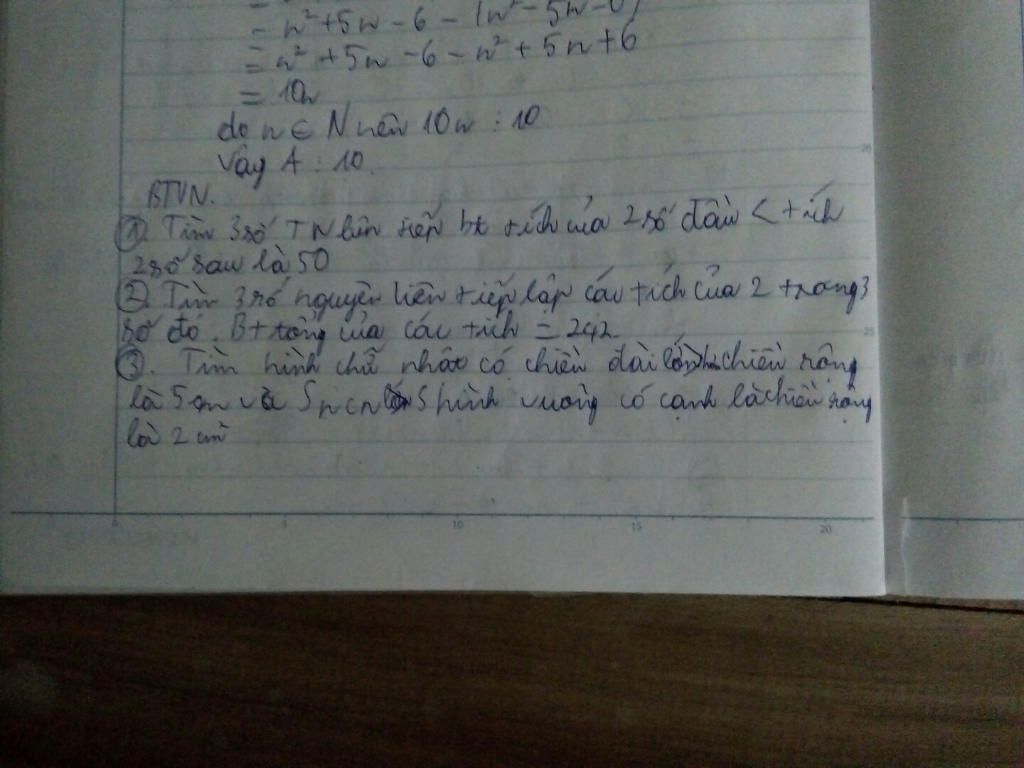 = n² + 5n - 6 - (n² - 5n - 6)
= n² + 5n - 6 - n² + 5n + 6
= 10n
do n ∈ N nên 10n ⋮ 10
Vậy A ⋮ 10.
BTVN.
① Tìm 3 số TN liên tiếp bt tích của 2 số đầu < tích
2 số sau là 50
② Tìm 3 số nguyên liên tiếp lập các tích của 2 trong 3
số đó. Bt tổng của các tích = 242
③. Tìm hình chữ nhật có chiều dài lớn hơn chiều rộng
là 5 cm và Shcn S hình vuông có cạnh là chiều rộng
là 2 cm
0 5 10 15 20